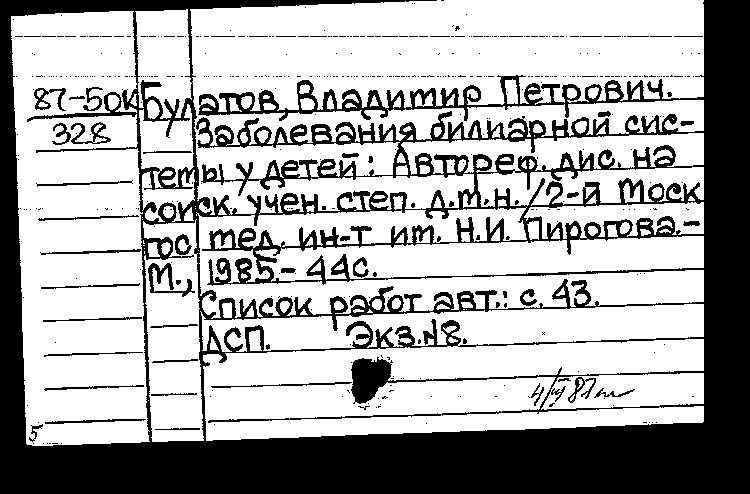 87-50К
328
Булатов, Владимир Петрович.
Заболевания билиарной сис-
темы у детей: Автореф. дис. на
соиск. учен. степ. д.м.н. /2-й Моск
гос. мед. ин-т им. Н.И. Пирогова.-
М., 1985.- 44с.
Список работ авт.: с. 43.
ДСП. Экз.N8.
5